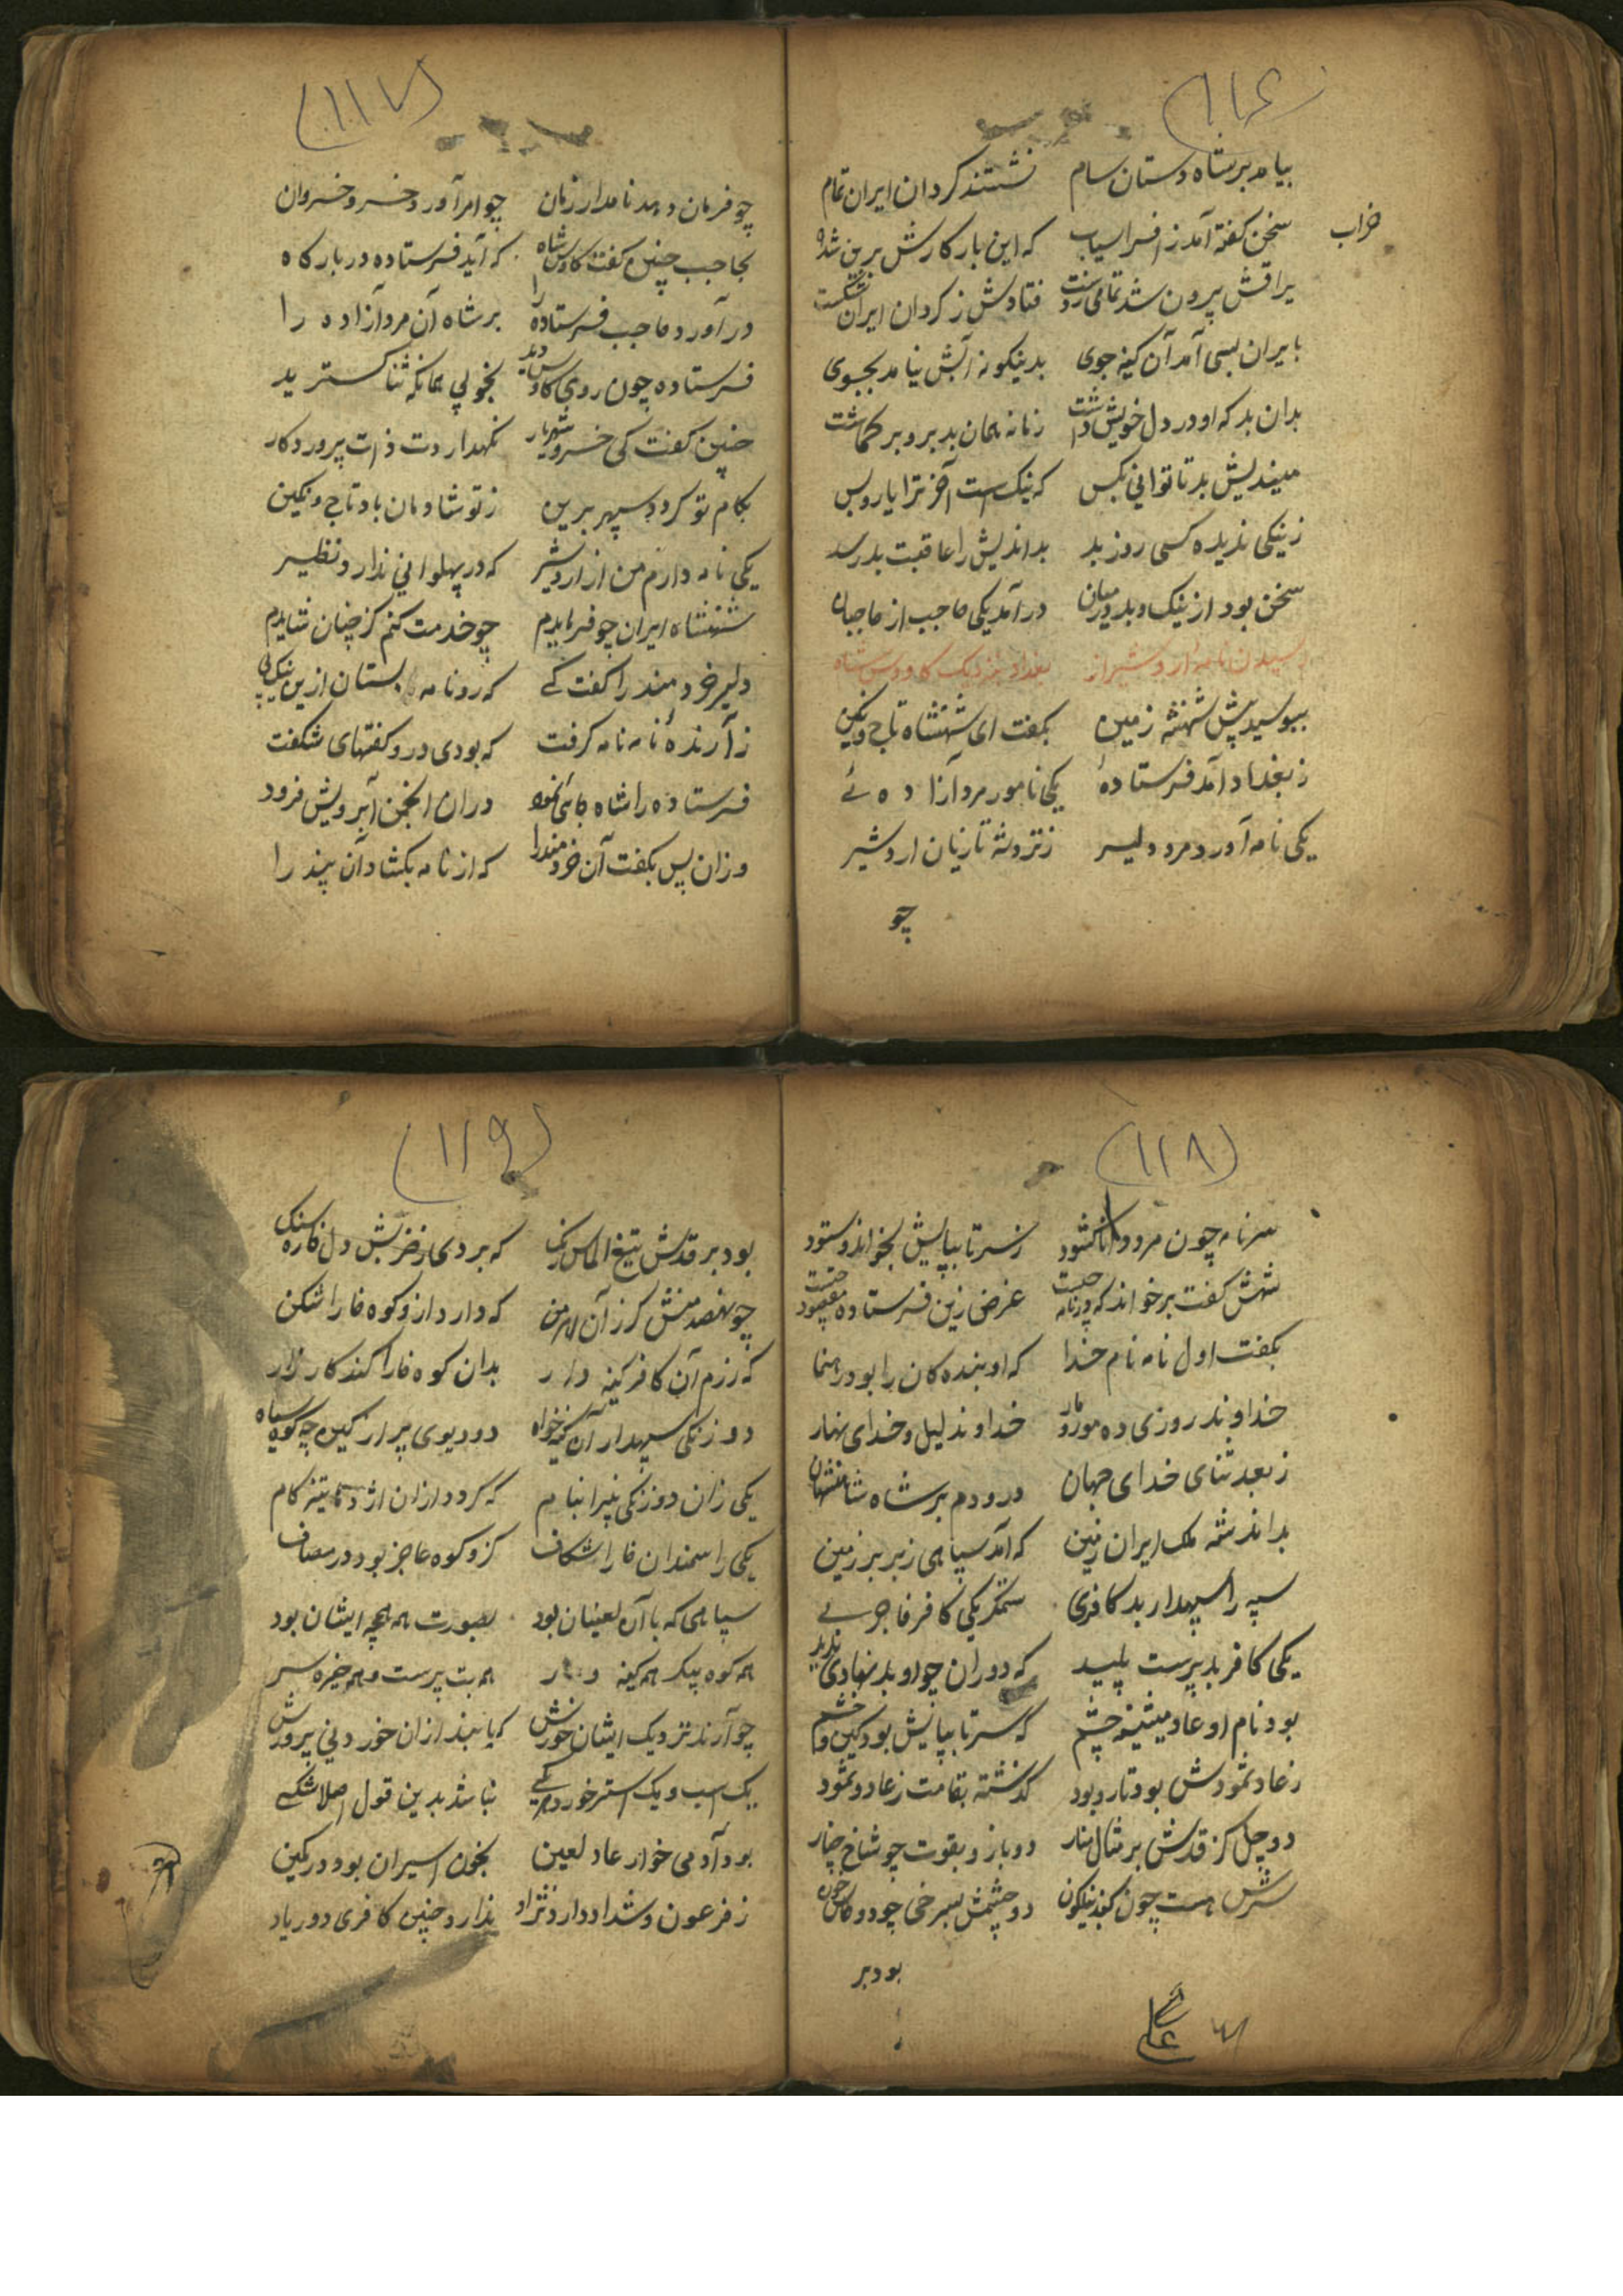 (۱۱۶)
بیامد بر شاه دستان سام نشستند کردان ایران تمام
سخن کفته آمد ز افراسیاب که این بار کارش برین شد خراب
یراقش بیرون شد تمامی ز دست فتادش ز کردان ایران شکست
بایران بسی آمد آن کینه جوی بدینکونه آبش نیامد بجوی
بدان بد که او در دل خویش داشت زمانه همان بد برو بر کماشت
میندیش بد تا توانی بکس که نیک است آخر ترا یار و بس
ز نیکی ندیده کسی روز بد بد اندیش را عاقبت بد رسد
سخن بود از نیک و بد در میان درآمد یکی حاجب از حاجبان
رسیدن نامه اردشیر از بغداد بنزدیک کاووس شاه
ببوسید پیش شهنشه زمین بکفت ای شهنشاه تاج و نکین
ز بغداد آمد فرستادهٔ یکی نامور مرد آزاده ئے
یکی نامه آورد مرد دلیر ز نزد شه تازیان اردشیر
چو
(۱۱۷)
چو فرمان دهد نامدار زمان چو امر آورد خسرو خسروان
بحاجب چنین کفت کاوس شاه که آید فرستاده در بارکاه
در آورد حاجب فرستاده را بر شاه آن مرد آزاده را
فرستاده چون روی کاوس دید بخوبی همانکه ثنا کسترید
چنین کفت کی خسرو شهریار نکهداردت ذات پروردکار
بکام تو کردد سپهر برین ز تو شادمان باد تاج و نکین
یکی نامه دارم من از اردشیر که در پهلوانی ندارد نظیر
شهنشاه ایران چو فرمایدم چو خدمت کنم کز چنان شایدم
دلیر خردمند را کفت کے که رو نامه بستان ازین نیک پی
ز آرندهٔ نامه نامه کرفت که بودی درو کفتهای شکفت
فرستاده را شاه جائی نمود دران انجمن آبرویش فزود
وزان پس بکفت آن خردمند را که از نامه بکشاد آن بند را
(۱۱۸)
سر نامه چون مرد دانا کشود ز سر تا بپایش بخواند و ستود
شهش کفت برخواند که در نامه چیست غرض زین فرستاده مقصود چیست
بکفت اول نامه نام خدا که او بنده کان را بود رهنما
خداوند روزی ده مور و مار خداوند لیل و خدای نهار
ز بعد ثنای خدای جهان درودم بر شاه شاهنشهان
بداند شه ملک ایران زمین که آمد سپاهی ز بربر زمین
سپه را سپهدار بد کافری ستمکر یکی کافر فاجرے
یکی کافر بد پرست پلید که دوران چو او بد نهادی ندید
بود نام او عاد میشینه چشم که سر تا بپایش بود کین و خشم
ز عاد و ثمودش بود تار و بود کذشته بقامت ز عاد و ثمود
دو چل کز قدش بر مثال منار دو بازو بقوت چو شاخ چنار
سرش هست چون کنبد نیلکون دو چشمش بسرخی چو دو کاس خون
بود بر
(۱۱۹)
بود بر قدش تیغ الماس رنک که بردی ز ضربش دل خاره سنک
چو نهصد منش کرز آن اهرمن که دارد ازو کوه خارا شکن
که رزم آن کافر کینه دار بدان کوه خارا کند کارزار
دو زنکی سپهدار آن کینه خواه دو دیوی پر از کین چو کوه سیاه
یکی زان دو زنکی بنام که کردد ازان اژدها تیز کام
یکی را سمندان خارا شکاف کزو کوه عاجز بود در مصاف
سپاهی که با آن لعینان بود بصورت همه همچو ایشان بود
همه کوه پیکر همه کینه ور همه بت پرست و همه خیره سر
چو آرند نزدیک ایشان خورش که یابند ازان خوردنی پرورش
یک اسب و یک استر خورد هر یکے نباشد بدین قول اصلا شکے
بود آدمی خوار عاد لعین بخون اسیران بود در کمین
ز فرعون و شداد دارد نژاد ندارد چنین کافری دور یاد